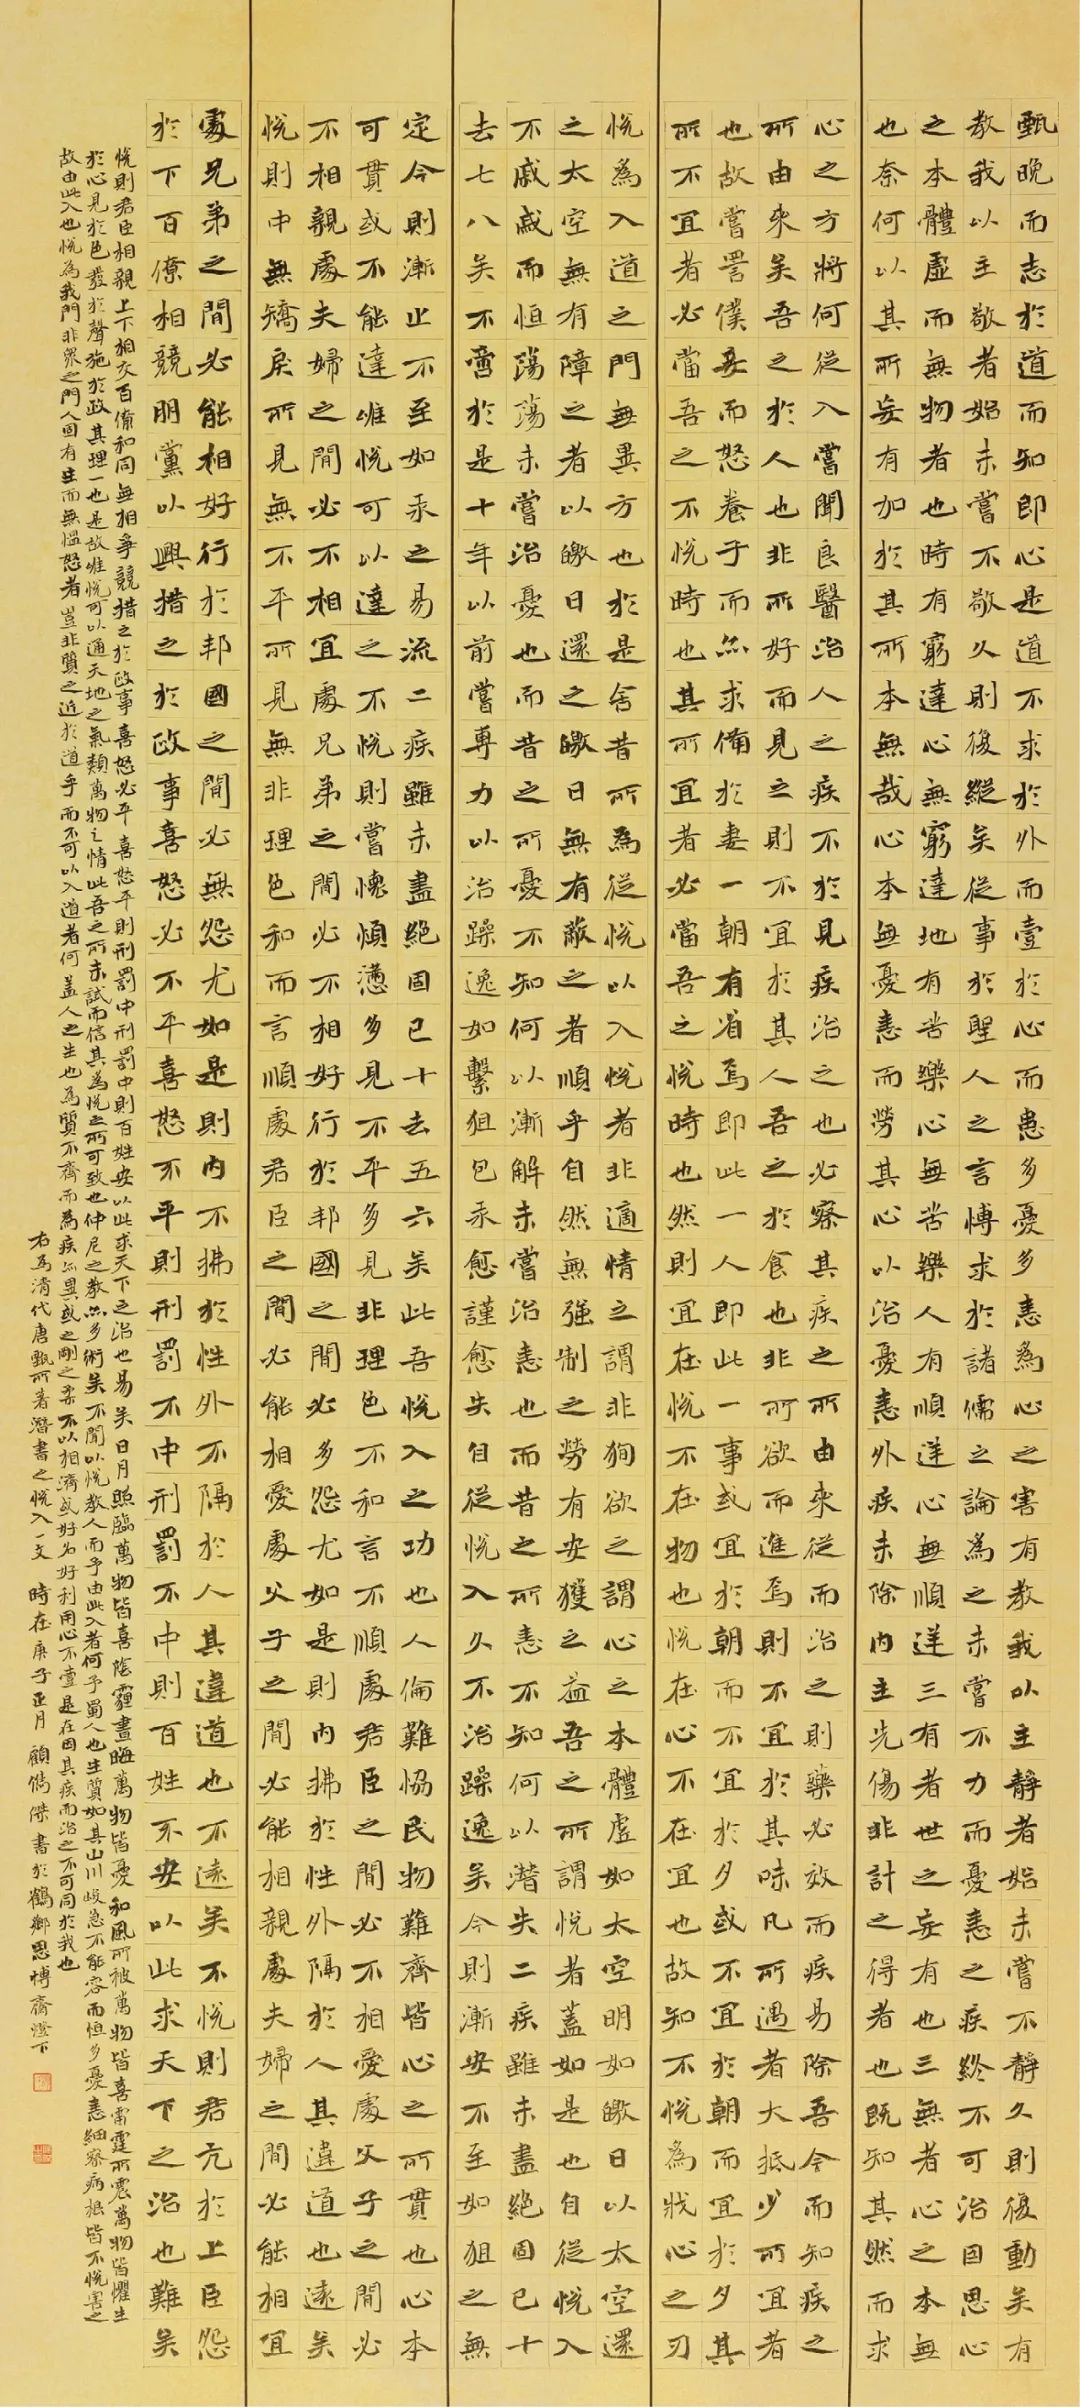 甄晚而志於道而知即心是道不求於外而壹於心而患多憂多恚為心之害有教我以主靜者始未嘗不靜久則復動矣有
教我以主敬者始未嘗不敬久則復縱矣從事於聖人之言博求於諸儒之論為之未嘗不力而憂恚之疾終不可治因思心
之本體虛而無物者也時有窮達心無窮達地有苦樂心無苦樂人有順逆心無順逆三有者世之妄有也三無者心之本無
也奈何以其所妄有加於其所本無哉心本無憂恚而勞其心以治憂恚外疾未除內主先傷非計之得者也既知其然而求
心之方將何從入嘗聞良醫治人之疾不於見疾治之也必察其疾之所由來從而治之則藥必效而疾易除吾今而知疾之
所由來矣吾之於人也非所好而見之則不宜於其人吾之於食也非所欲而進焉則不宜於其味凡所遇者大抵少所宜者
也故嘗詈僕妾而怒養子而亦求備於妻一朝有省焉即此一人即此一事或宜於朝而不宜於夕或不宜於朝而宜於夕其
所不宜者必當吾之不悅時也其所宜者必當吾之悅時也然則宜在悅不在物也悅在心不在宜也故知不悅為戕心之刃
悅為入道之門無異方也於是舍昔所為從悅以入悅者非適情之謂非狥欲之謂心之本體虛如太空明如皦日以太空還
之太空無有障之者以皦日還之皦日無有蔽之者順乎自然無强制之勞有安獲之益吾之所謂悅者蓋如是也自從悅入
不戚戚而恒蕩蕩未嘗治憂也而昔之所憂不知何以漸解未嘗治恚也而昔之所恚不知何以潛失二疾雖未盡絕固已十
去七八矣不啻於是十年以前嘗專力以治躁逸如繫狙包汞愈謹愈失自從悅入久不治躁逸矣今則漸安不至如狙之無
定今則漸止不至如汞之易流二疾雖未盡絕固已十去五六矣此吾悅入之功也人倫難恊民物難齊皆心之所貫也心本
可貫或不能達惟悅可以達之不悅則嘗懷煩懣多見不平多見非理色不和言不順處君臣之間必不相愛處父子之間必
不相親處夫婦之間必不相宜處兄弟之間必不相好行於邦國之間必多怨尤如是則內拂於性外隔於人其違道也遠矣
悅則中無矯戾所見無不平所見無非理色和而言順處君臣之間必能相愛處父子之間必能相親處夫婦之間必能相宜
處兄弟之間必能相好行於邦國之間必無怨尤如是則內不拂於性外不隔於人其違道也不遠矣不悅則君亢於上臣怨
於下百僚相競朋黨以興措之於政事喜怒必不平喜怒不平則刑罰不中刑罰不中則百姓不安以此求天下之治也難矣
悅則君臣相親上下相交百僚和同無相爭競措之於政事喜怒必平喜怒平則刑罰中刑罰中則百姓安以此求天下之治也易矣日月照臨萬物皆喜陰霾晝晦萬物皆憂和風所被萬物皆喜雷霆所震萬物皆懼生
於心見於色發於聲施於政其理一也是故惟悅可以通天地之氣類萬物之情此吾之所未試而信其為悅之所可致也仲尼之教亦多術矣不聞以悅教人而予由此入者何予蜀人也生質如其山川峻急不能容而恒多憂恚細察病根皆不悅害之
故由此入也悅為我門非眾之門人固有生而無慍怒者豈非質之近於道乎而不可以入道者何蓋人之生也為質不齊而為疾亦異或之剛之柔不以相濟或好名好利用心不壹是在因其疾而治之不可同於我也
右為清代唐甄所著潛書之悅入一文　時在庚子正月　顧儁傑書於鶴鄉思博齋燈下